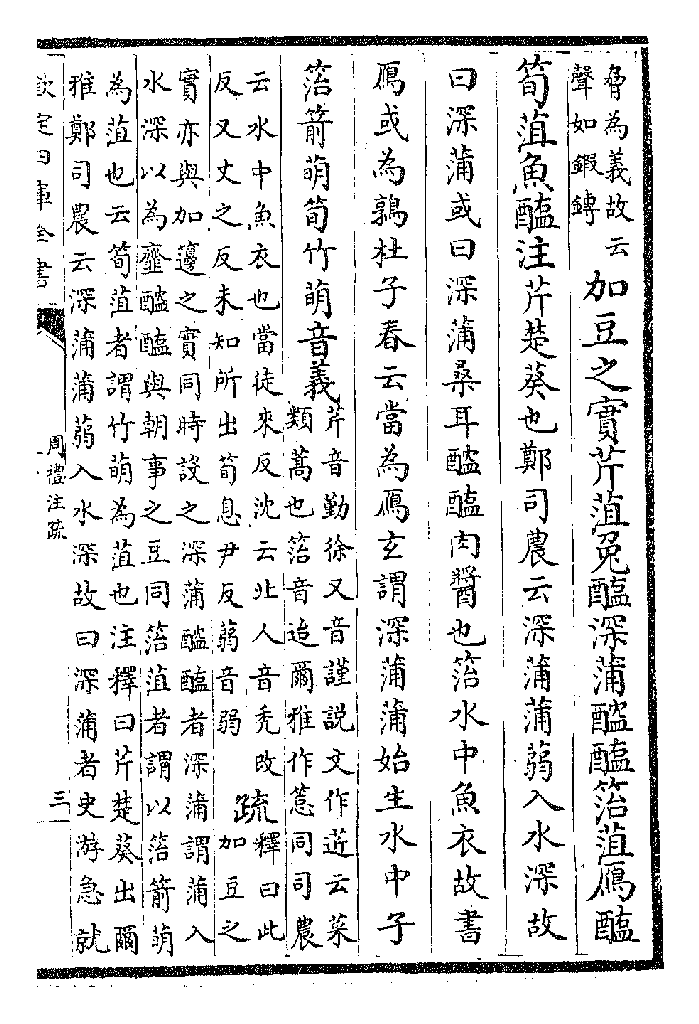 脅為義故云
聲如鍜鑄
加豆之實芹菹兔醢深蒲醓醢箈菹鴈醢
筍菹魚醢注芹楚葵也鄭司農云深蒲蒲蒻入水深故
曰深蒲或曰深蒲桑耳醓醢肉醬也箈水中魚衣故書
鴈或為鶉杜子春云當為鴈玄謂深蒲蒲始生水中子
箈箭萌筍竹萌音義
芹音勤徐又音謹説文作菦云菜
類蒿也箈音迨爾雅作同司農
云水中魚衣也當徒來反沈云北人音秃改
反又丈之反未知所出筍息尹反蒻音弱
疏
釋曰此
加豆之
實亦與加籩之實同時設之深蒲醓醢者深蒲謂蒲入
水深以為虀醓醢與朝事之豆同箈菹者謂以箈箭萌
為菹也云筍菹者謂竹萌為菹也注釋曰芹楚葵出爾
雅鄭司農云深蒲蒲蒻入水深故曰深蒲者史游急就
欽定四庫全書
周禮注疏
三